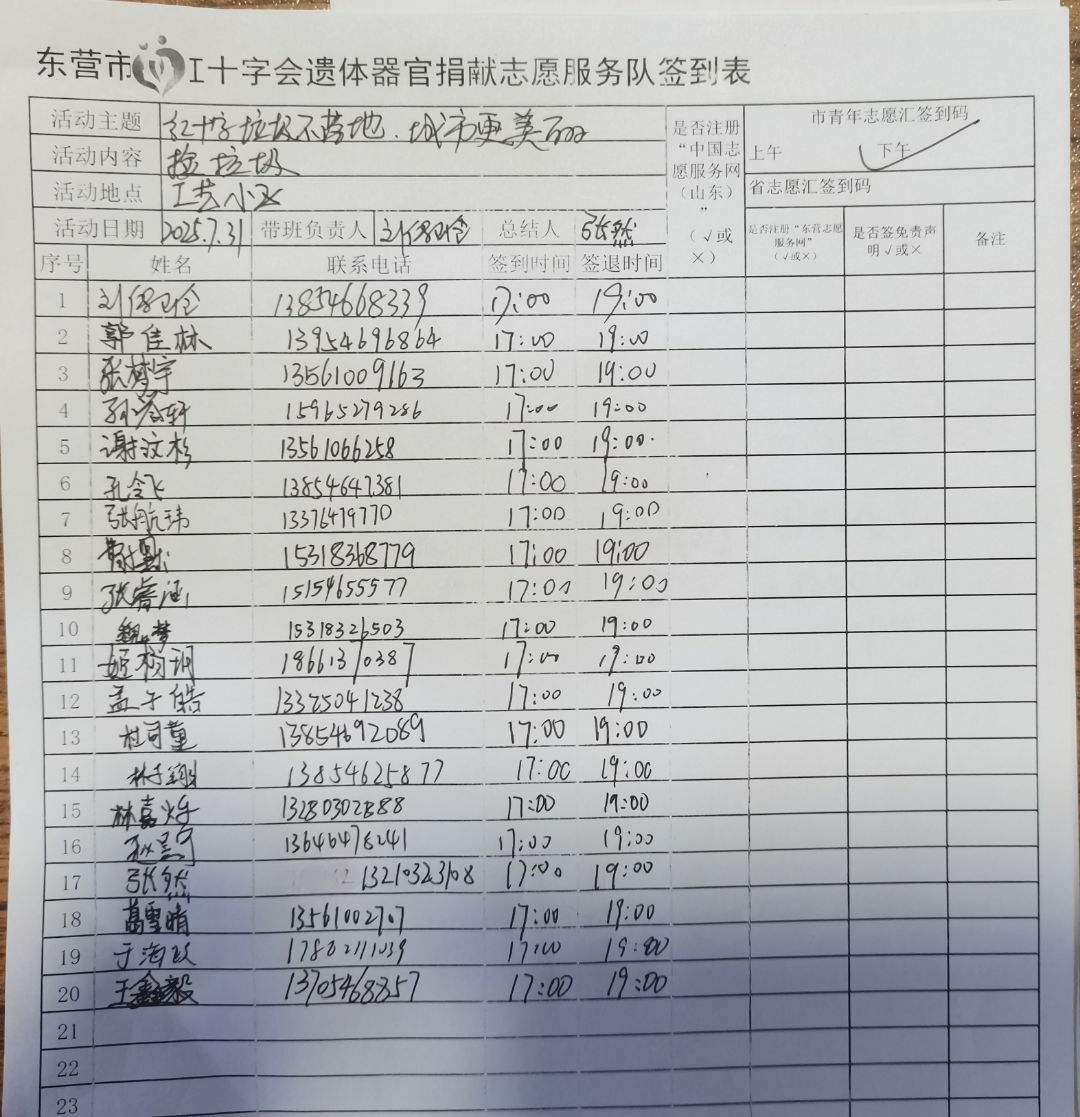 东营市 工十字会遗体器官捐献志愿服务队签到表
活动主题 红十字垃圾不落地、城市更美丽
是否注册“中国志愿服务网（山东）”（√或×）
市青年志愿汇签到码
上午 下午 √
活动内容 捡垃圾
活动地点 工艺小区
省志愿汇签到码
活动日期 2025.7.31 带班负责人 总结人 张然
是否注册“东营志愿服务网”（√或×） 是否签免责声明√或× 备注
序号 姓名 联系电话 签到时间 签退时间
1 13854668339 17:00 19:00
2 郭佳林 13954696864 17:00 19:00
3 张梦宇 13561009163 17:00 19:00
4 15965279286 17:00 19:00
5 谢汶杉 13561066258 17:00 19:00
6 孔令飞 13854647381 17:00 19:00
7 张航玮 13376479770 17:00 19:00
8 15318368779 17:00 19:00
9 张睿涵 15154655577 17:00 19:00
10 15318326503 17:00 19:00
11 18661370387 17:00 19:00
12 孟子皓 13325041238 17:00 19:00
13 杜司董 13854692089 17:00 19:00
14 林子翔 13854625877 17:00 19:00
15 13280302888 17:00 19:00
16 13646478241 17:00 19:00
17 张然 13210323108 17:00 19:00
18 葛雪晴 13561002707 17:00 19:00
19 17802111039 17:00 19:00
20 王鑫毅 13705468357 17:00 19:00
21
22
23